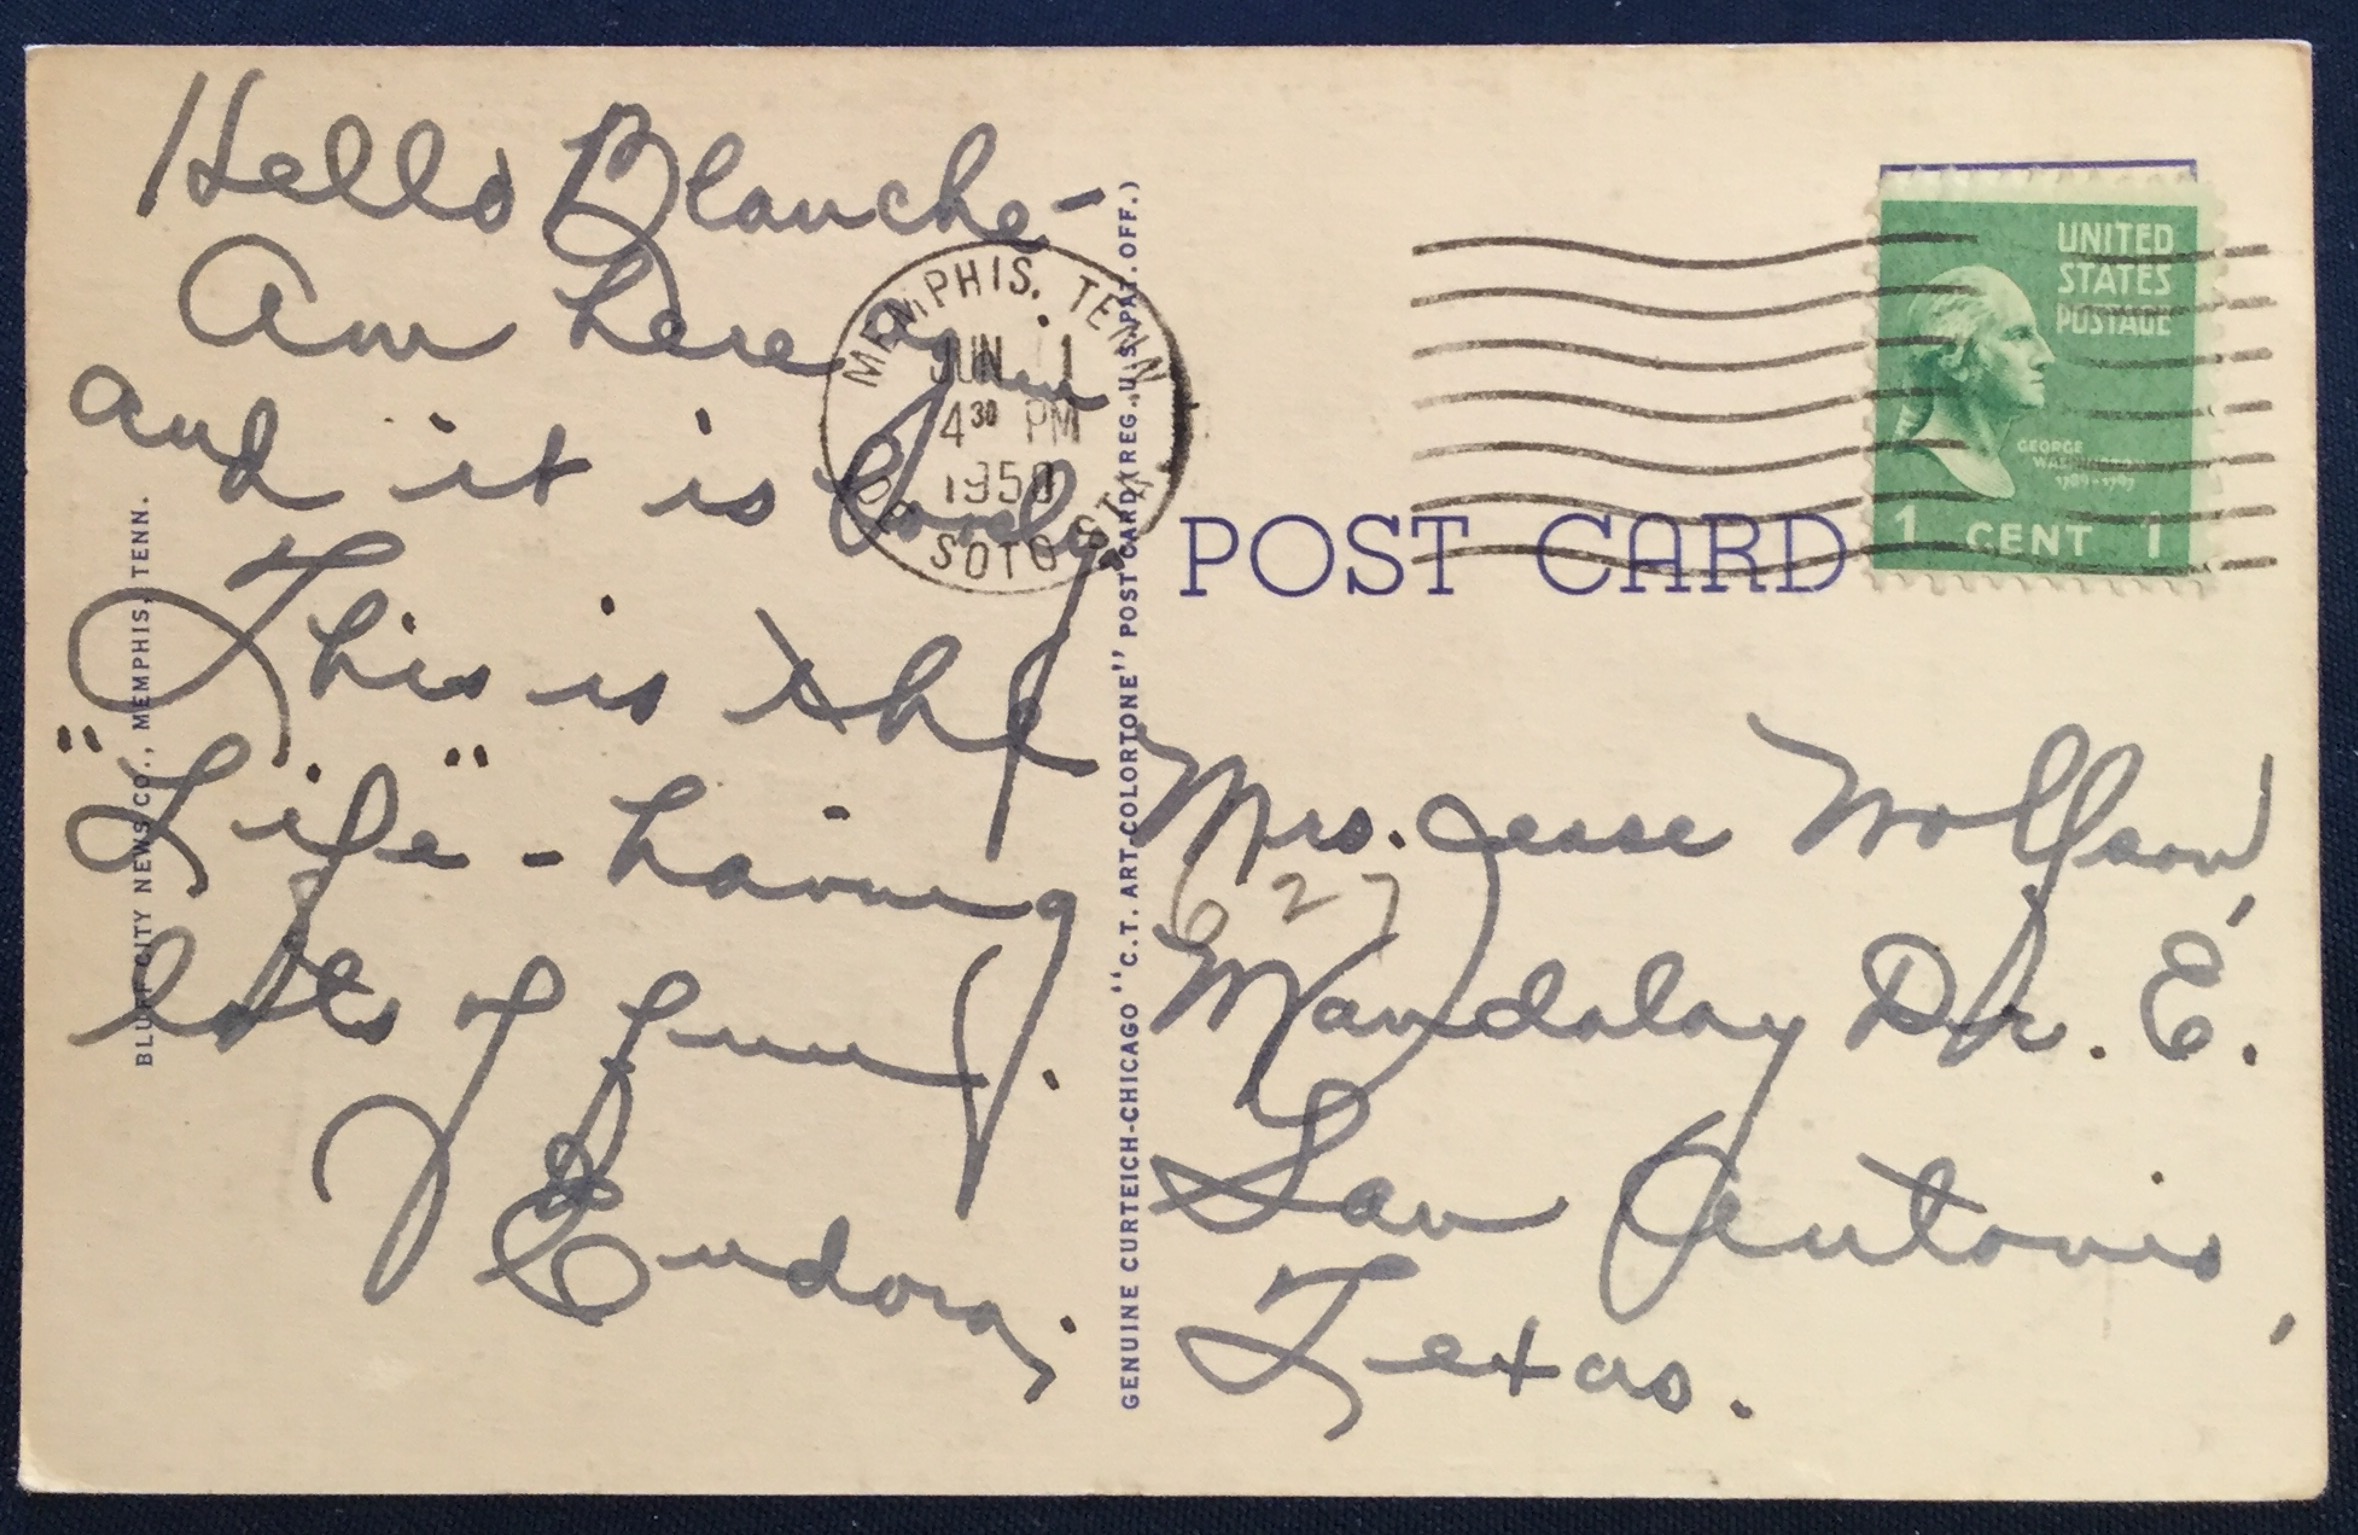 Hello Blanche -
Am here again
and it is lovely.
This is the
"Life" - having
lots of fun.
Eudora.
MEMPHIS, TENN.
JUN 1
4 30 PM
1950
DE SOTO STA.
BLUFF CITY NEWS CO., MEMPHIS, TENN.
GENUINE CURTEICH-CHICAGO "C.T. ART-COLORTONE" POST CARD (REG. U.S. PAT. OFF.)
POST CARD
UNITED
STATES
POSTAGE
GEORGE
WASHINGTON
1789-1797
1 CENT 1
Mrs. Jesse Wolfson,
627
Mandalay Dr. E.
San Antonio,
Texas.